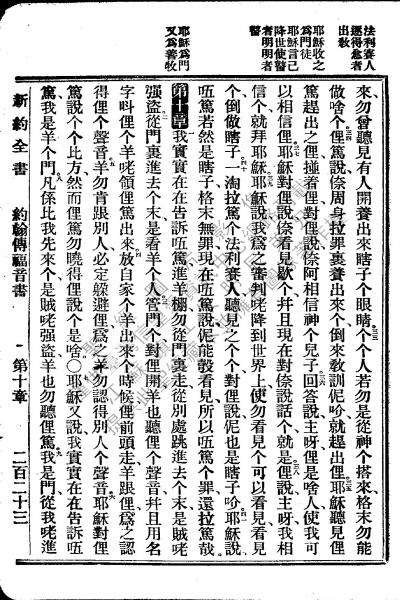 法利賽人
遂得愈者
出敎
耶穌收之
爲門徒
耶穌言己
降世使瞽
者明明者
瞽
耶穌爲門
又爲善牧
來勿曾聽見有人開養出來瞎子个眼睛个个人若勿是從神个搭來格末勿能
做啥个俚篤說倷周身拉罪裏養出來个倒來敎訓伲吤就趕出俚耶穌聽見俚
篤趕出之俚撞着俚對俚說倷阿相信神个兒子回答說主呀俚是啥人使我可
以相信俚耶穌對俚說倷看見歇个幷且現在對倷說話个就是俚說主呀我相
信个就拜耶穌耶穌說我爲之審判咾降到世界上使勿看見个可以看見看見
个倒做瞎子一淘拉篤个法利賽人聽見之个个對俚說伲也是瞎子吤耶穌說
㕶篤若然是瞎子格末無罪現在㕶篤說伲能彀看見所以㕶篤个罪還拉篤哉
第十章我實實在在告訴㕶篤進羊棚勿從門裏走從別處跳進去个末是賊咾
强盜從門裏進去个末是看羊个人管門个對俚開羊也聽俚个聲音幷且用名
字呌俚个羊咾領俚篤出來放自家个羊出來个時候俚前頭走羊跟俚爲之認
得俚个聲音羊勿肯跟別人必定躱避俚爲之羊勿認得別人个聲音耶穌對俚
篤說个个比方然而俚篤勿曉得俚說个是啥○耶穌又說我實實在在告訴㕶
篤我是羊个門凡係比我先來个是賊咾强盜羊也勿聽俚篤我是門從我咾進
新約全書 約翰傳福音書 第十章 二百二十三